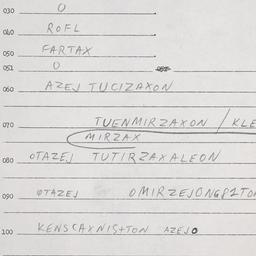 030 O
040 ROFL
050 FARTAX
051 O
060 AZEJ TUCIZAXON
070 TUENMIRZAXON / KLE
MIRZAX
080 OTAZEJ TUTIRZAXALEON
090 OTAZEJ
100 KENSCAXNISTTON AZEJO